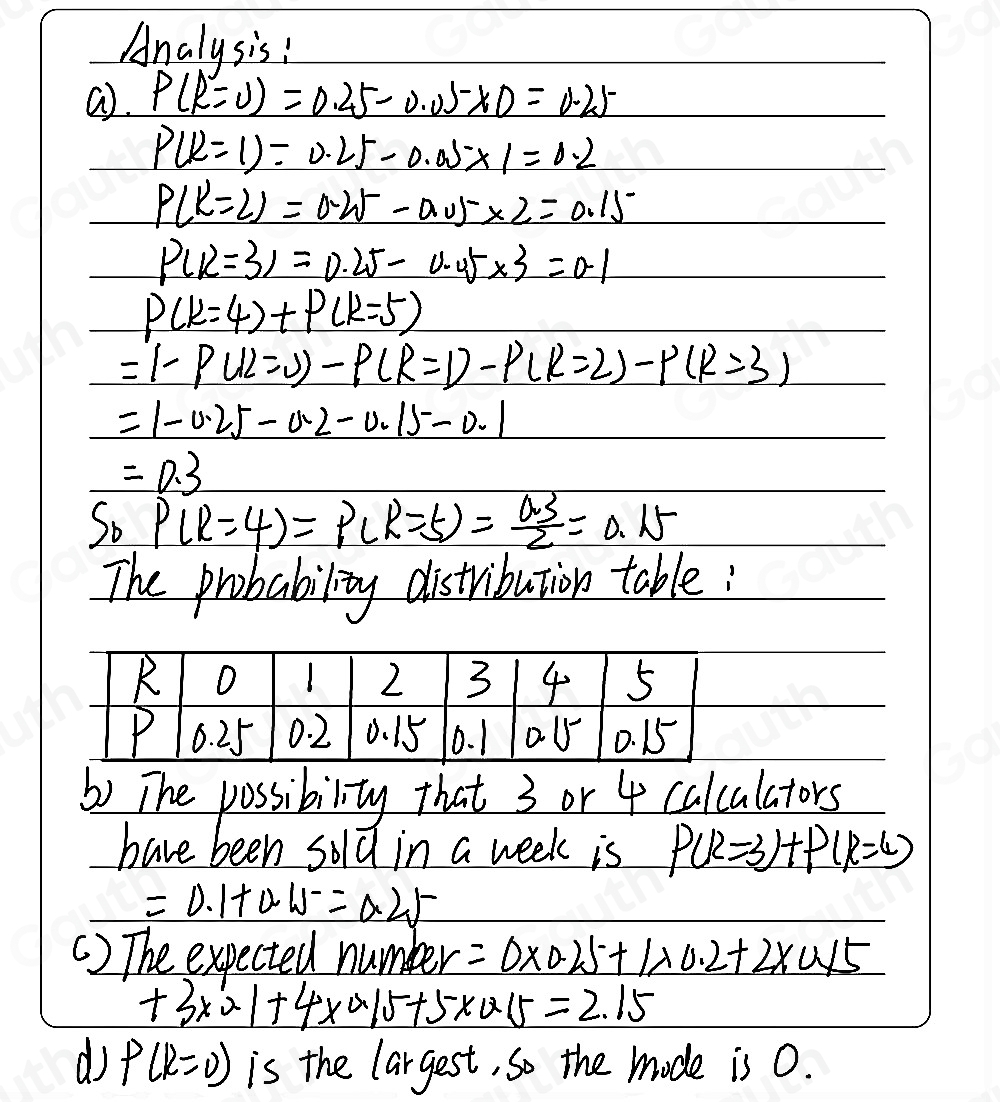 Analysis:
a). P(R=0) = 0.25 - 0.05×0 = 0.25
P(R=1) = 0.25 - 0.05×1 = 0.2
P(R=2) = 0.25 - 0.05×2 = 0.15
P(R=3) = 0.25 - 0.05×3 = 0.1
P(R=4)+P(R=5)
=1-P(R=0)-P(R=1)-P(R=2)-P(R=3)
=1-0.25-0.2-0.15-0.1
=0.3
So P(R=4)=P(R=5)=0.3/2=0.15
The probability distribution table:
R 0 1 2 3 4 5
P 0.25 0.2 0.15 0.1 0.15 0.15
b) The possibility that 3 or 4 calculators
have been sold in a week is P(R=3)+P(R=4)
=0.1+0.15=0.25
c) The expected number = 0×0.25+1×0.2+2×0.15
+3×0.1+4×0.15+5×0.15=2.15
d) P(R=0) is the largest, so the mode is 0.